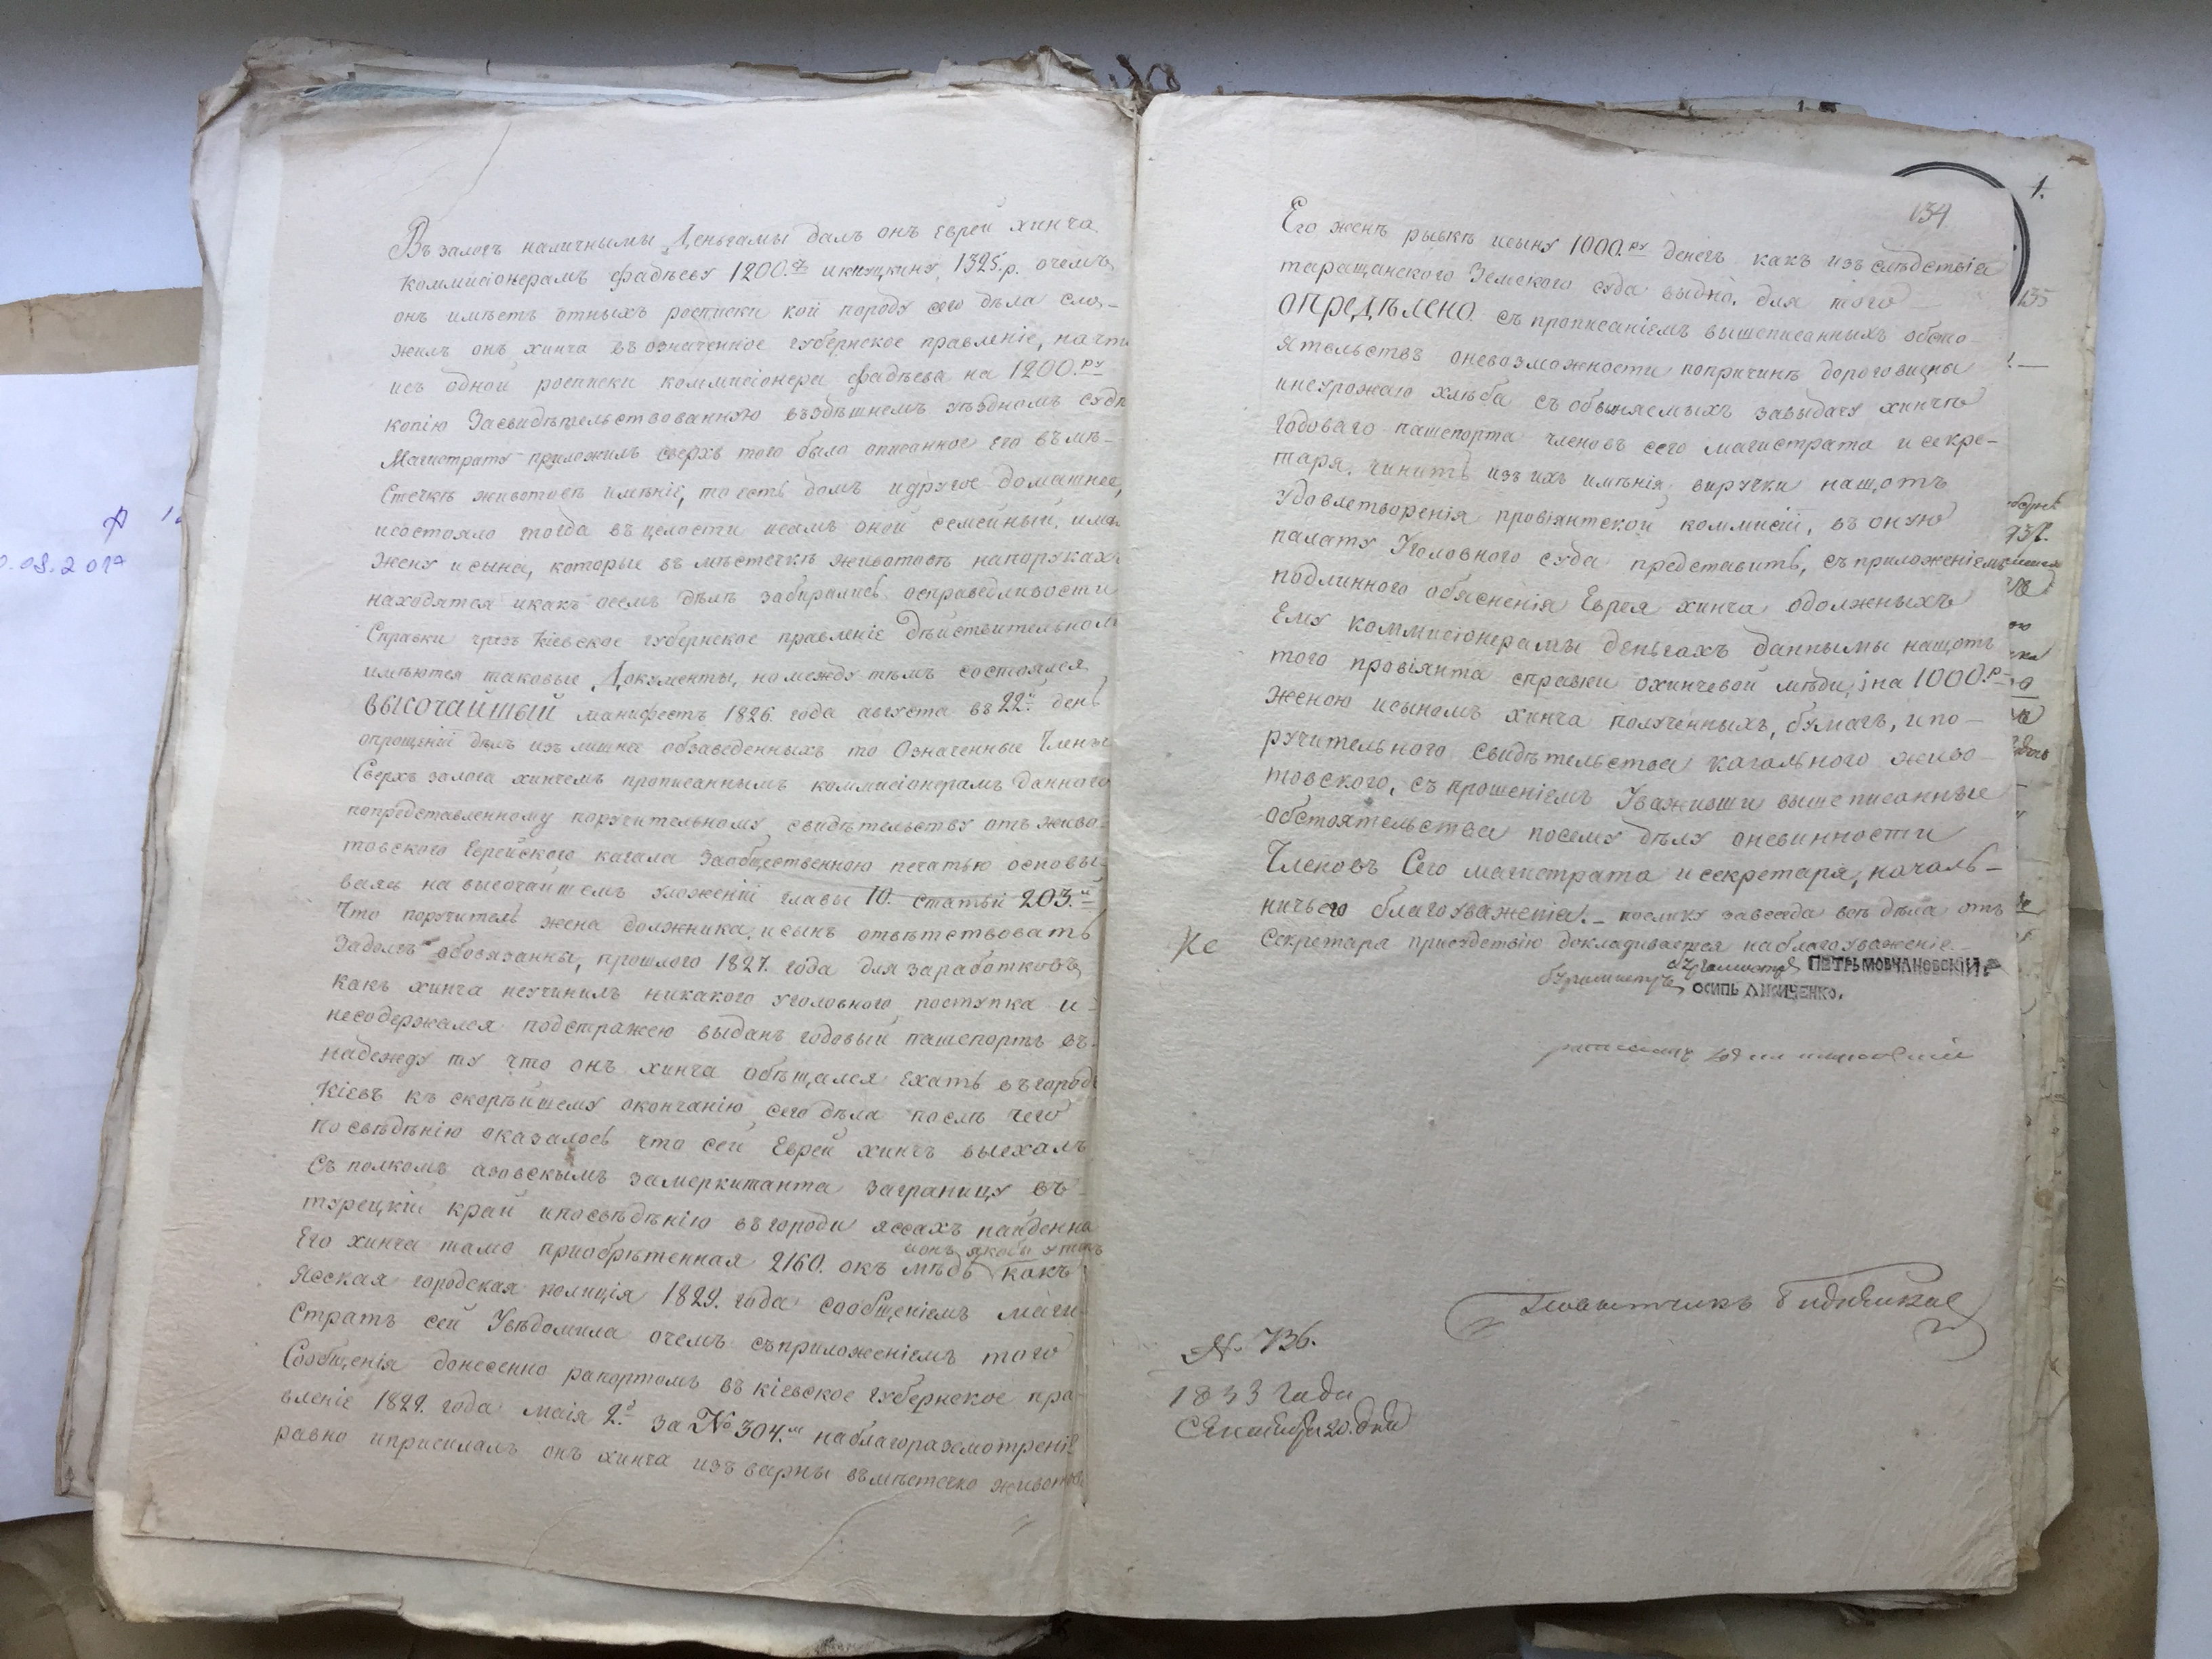 Въ залогъ наличнымы Деньгамы далъ онъ Еврей хинча
Коммисіонерамъ фадѣеву 1200. 1325 р. очемъ
онъ имѣетъ отныхъ росписки кой породу сего дѣла сло-
жилъ онъ хинча въ означенное губернское правленіе, на
исъ одной росписки коммисіонера фадѣева на 1200. ру
копію Засвидѣтельствованную въздѣшнемъ уѣздномъ судѣ
Магистрату приложилъ сверхъ того было описанное Его въ мѣ-
стечкѣ животовѣ имѣніе, то есть домъ идругое домашнее,
исостояло тогда въ целости исамъ оной семейный,
жену исына, которые въ мѣстечкѣ животовѣ напорукахъ
находятся икакъ осемъ дѣлѣ забирались осправедливости
Справки чрезъ Кіевское губернское правленіе Дѣйствительно
имѣются таковые Документы, но между тѣмъ состоялся
ВЫСОЧАЙШЫЙ манифестъ 1826. года августа въ 22й день
опрощеніи дѣлъ излишнее обзаведенныхъ то Означенные Члены
Сверхъ залога хинчемъ прописаннымъ коммисіонерамъ Данного
попредставленному поручительному свидѣтельству отъ живо-
товского Еврейского кагала Заобщественною печатью основы-
ваясь на высочайшемъ уложеніи главы 10. статьи 203.й
Что поручитель жена должника, исынъ отвѣтствовать
Задолгъ обовязанны, прошлого 1827. года для заработковъ
какъ хинча неучинилъ никакого уголовного поступка и
несодержался подстражею выданъ годовый пашепортъ въ
надежду ту что онъ хинча обѣщался Ехать въ городъ
Кіевъ къ скорѣйшему окончанію сего дѣла послѣ чего
по свѣдѣнію оказалось что сей Еврей хинчъ выехалъ
Съ полкомъ азовскымъ замеркитанта заграницу въ
турецкій край ипосвѣдѣнію въ городи яссахъ найденна
ионъ якобы
Его хинча тамо приобрѣтенная 2160. окъ мѣдь какъ
Ясская городская полиція 1829. года сообщеніемъ маги-
стратъ сей Увѣдомила очемъ съприложеніемъ того
Сообщенія донесенно рапортомъ въ кіевское губернское пра-
вленіе 1829. года маія 2. за № 304.м наблагоразмотреніе
равно иприсилалъ онъ хинча изъ варны вмѣстечко
134
Его женѣ рывкѣ исыну 1000. ру денегъ какъ изъ слѣдствія
таращанского Земского суда выдно, для того
ОПРЕДѢЛЕНО. съ прописаніемъ вышеписанныхъ обсто-
ятельствъ оневозможности попричинѣ дороговизны
инеурожаю хлѣба съ обвиняемыхъ завыдачу хинчѣ
годоваго пашепорта членовъ сего магистрата и секре-
таря. чинить изъ ихъ имѣнія, виручки нащотъ
удовлетворенія провіянтской коммисіи, въ оную
палату Уголовного суда представить, съ приложеніемъ
подлинного обясненія Еврея хинча одолжныхъ
Ему коммисіонерамы деньгахъ даннымы нащотъ
того провіянта справки охинчевой мѣди, іна 1000. р
женою исыномъ хинча полученныхъ, бумагъ, ипо-
ручительного свидѣтельства кагального живо-
товского, съ прошеніемъ Уваживши вышеписанные
обстоятельства посему дѣлу оневинности
Членовъ Сего магистрата и секретаря, началь-
ничьего благоуваженія. поелику завсегда всѣ дѣла отъ
Секретаря присудствію докладивается наблагоуваженіе.
ПЕТРЬ МОВЧАНОВСКІЙ
бурмистръ ОСИПЬ ЛИСИЧЕНКО.
№ 736.
1833 Года
Сентября 20. дня
1.
135